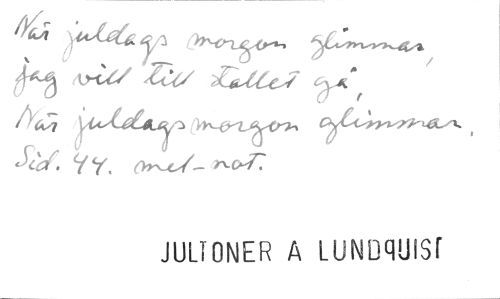 När juldags morgon glimmar,
jag vill till stallet gå,
När juldagsmorgon glimmar.
Sid. 44. mel-not.
JULTONER A LUNDQUIST